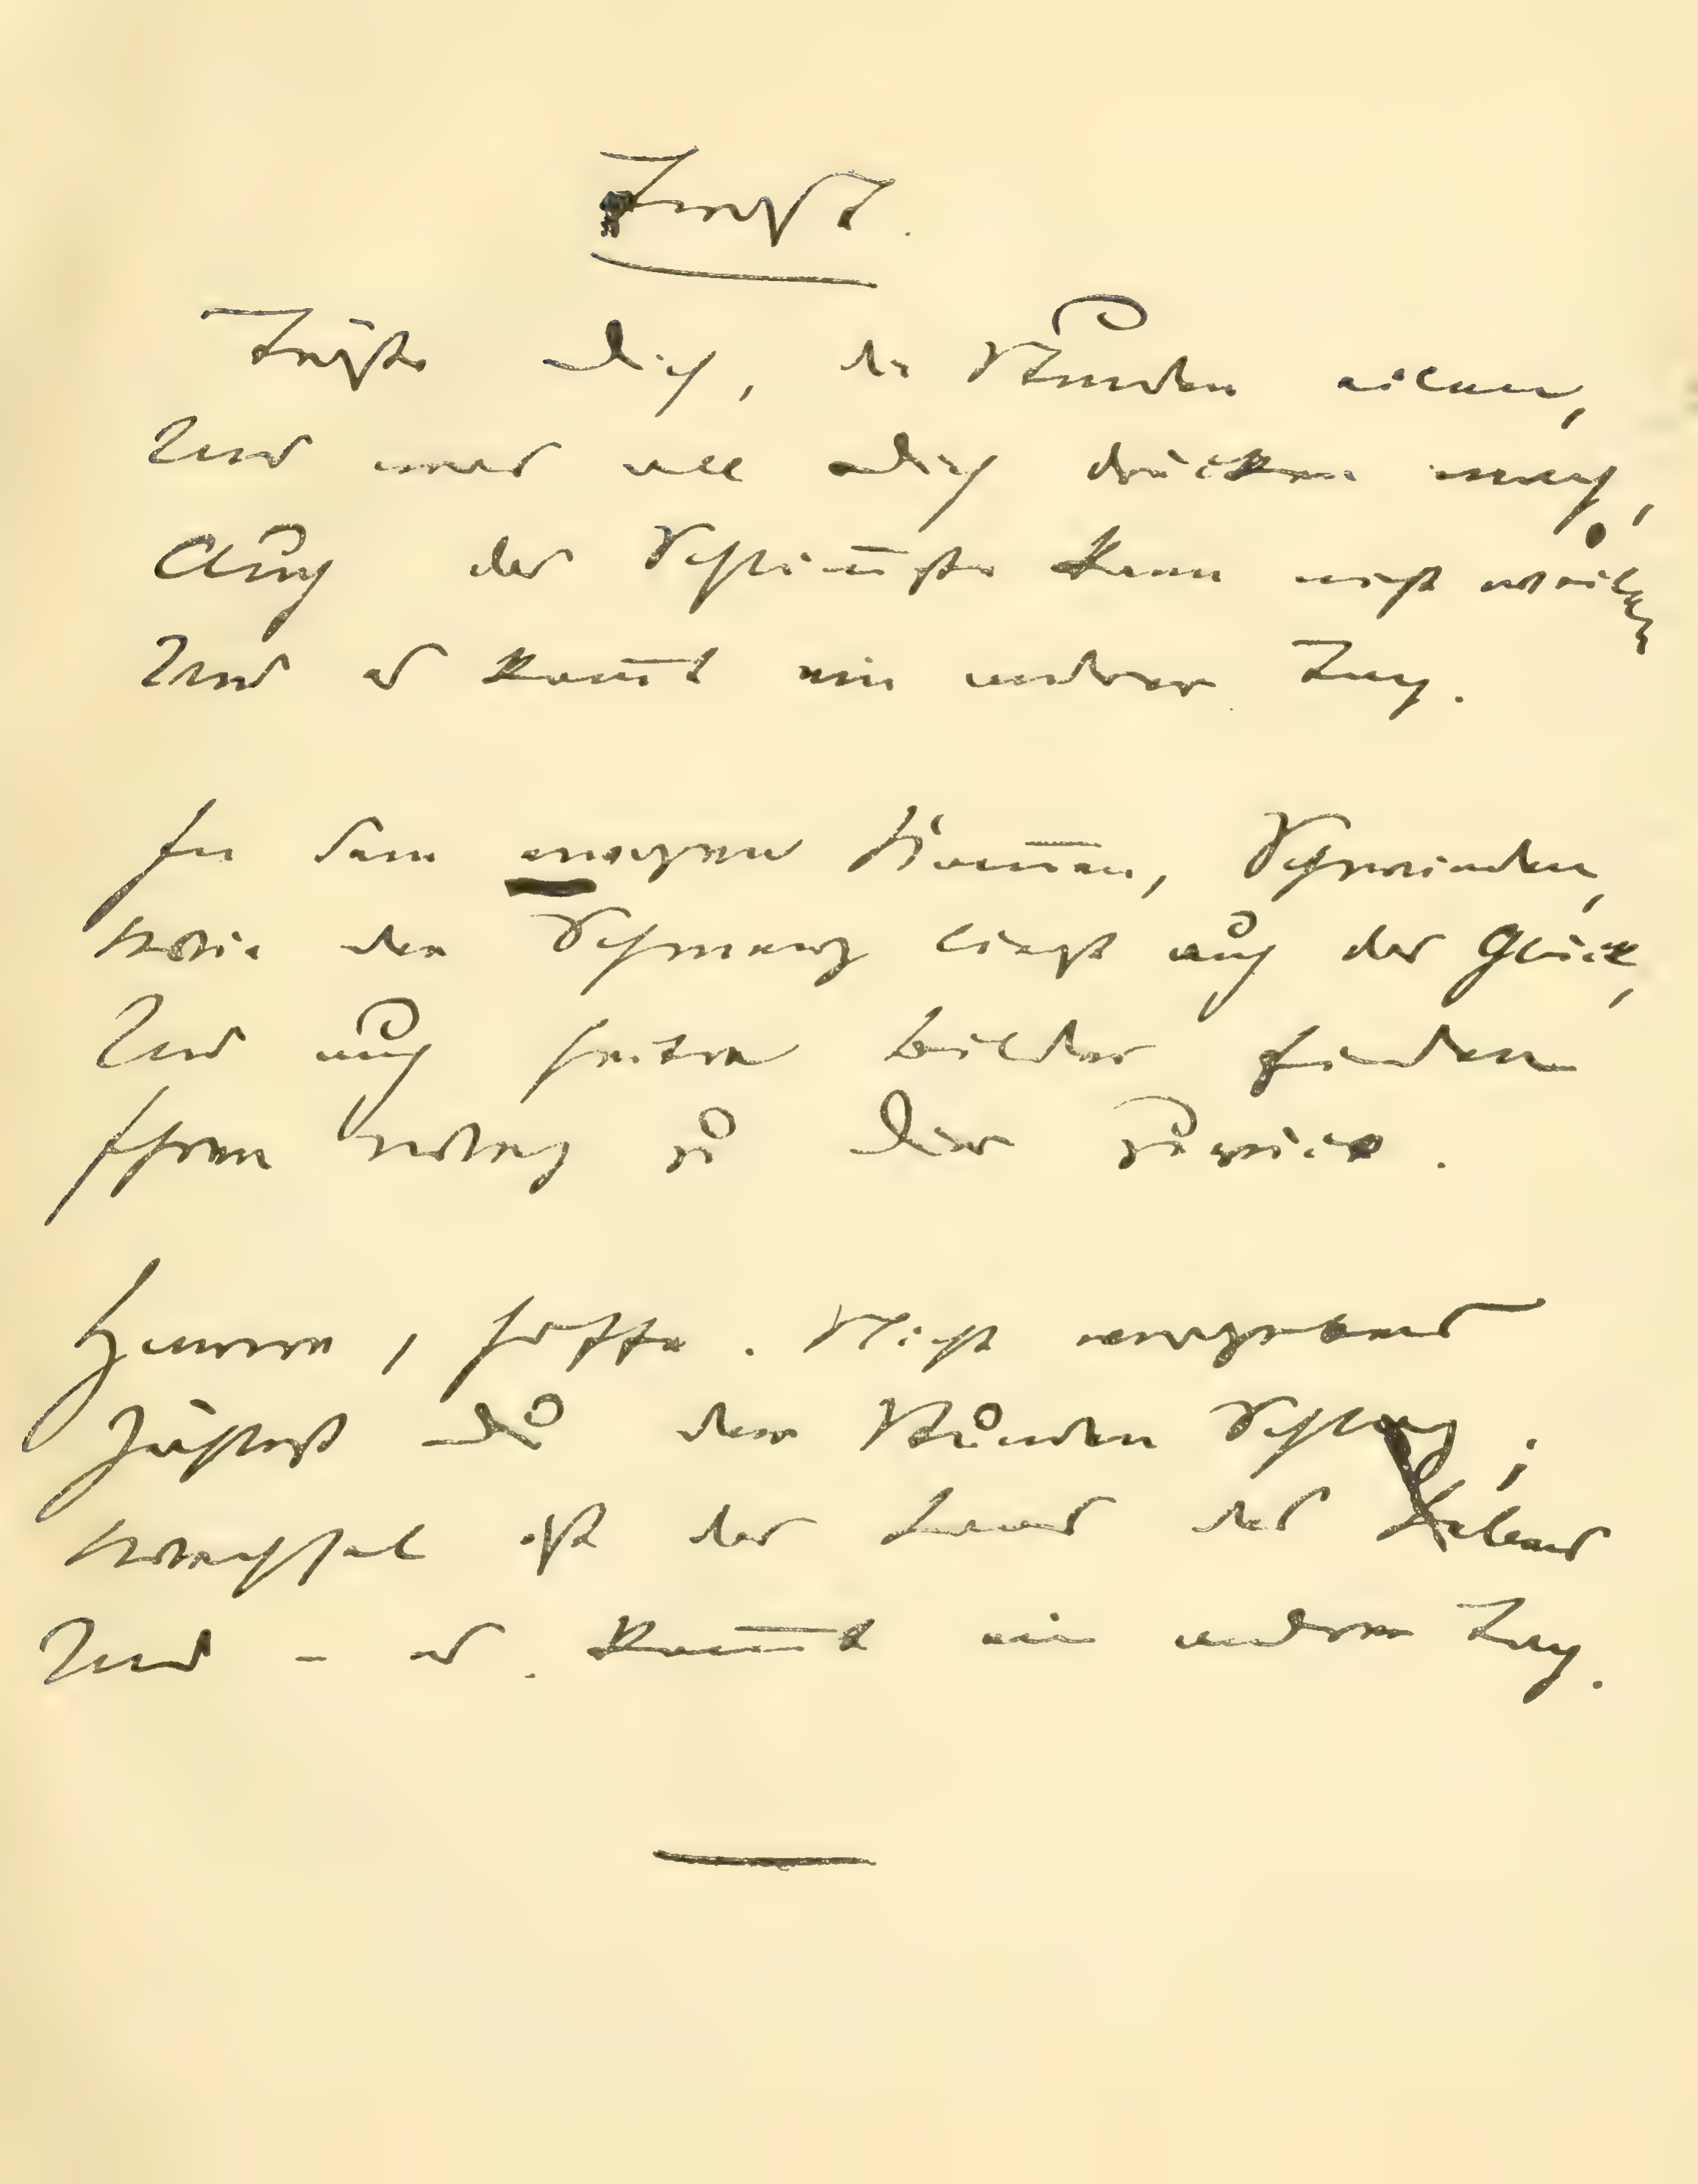 Trost.
Tröste dich, die Stunden eilen,
Und was all dich drücken mag,
Auch das Schlim̅ste kann nicht weilen,
Und es kom̅t ein andrer Tag.
In dem ew'gen Kom̅en, Schwinden,
Wie der Schmerz liegt auch das Glück,
Und auch heitre Bilder finden
Ihren Weg zu dir zurück.
Harre, hoffe. Nicht vergebens
Zählest du der Stunden Schlag;
Wechsel ist das Loos des Lebens
Und - es kom̅t ein andrer Tag.